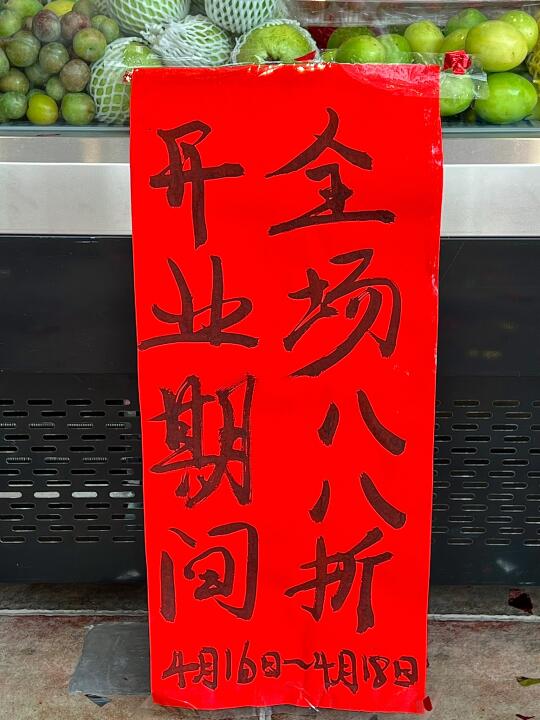 开业期间
全场八八折
4月16日~4月18日